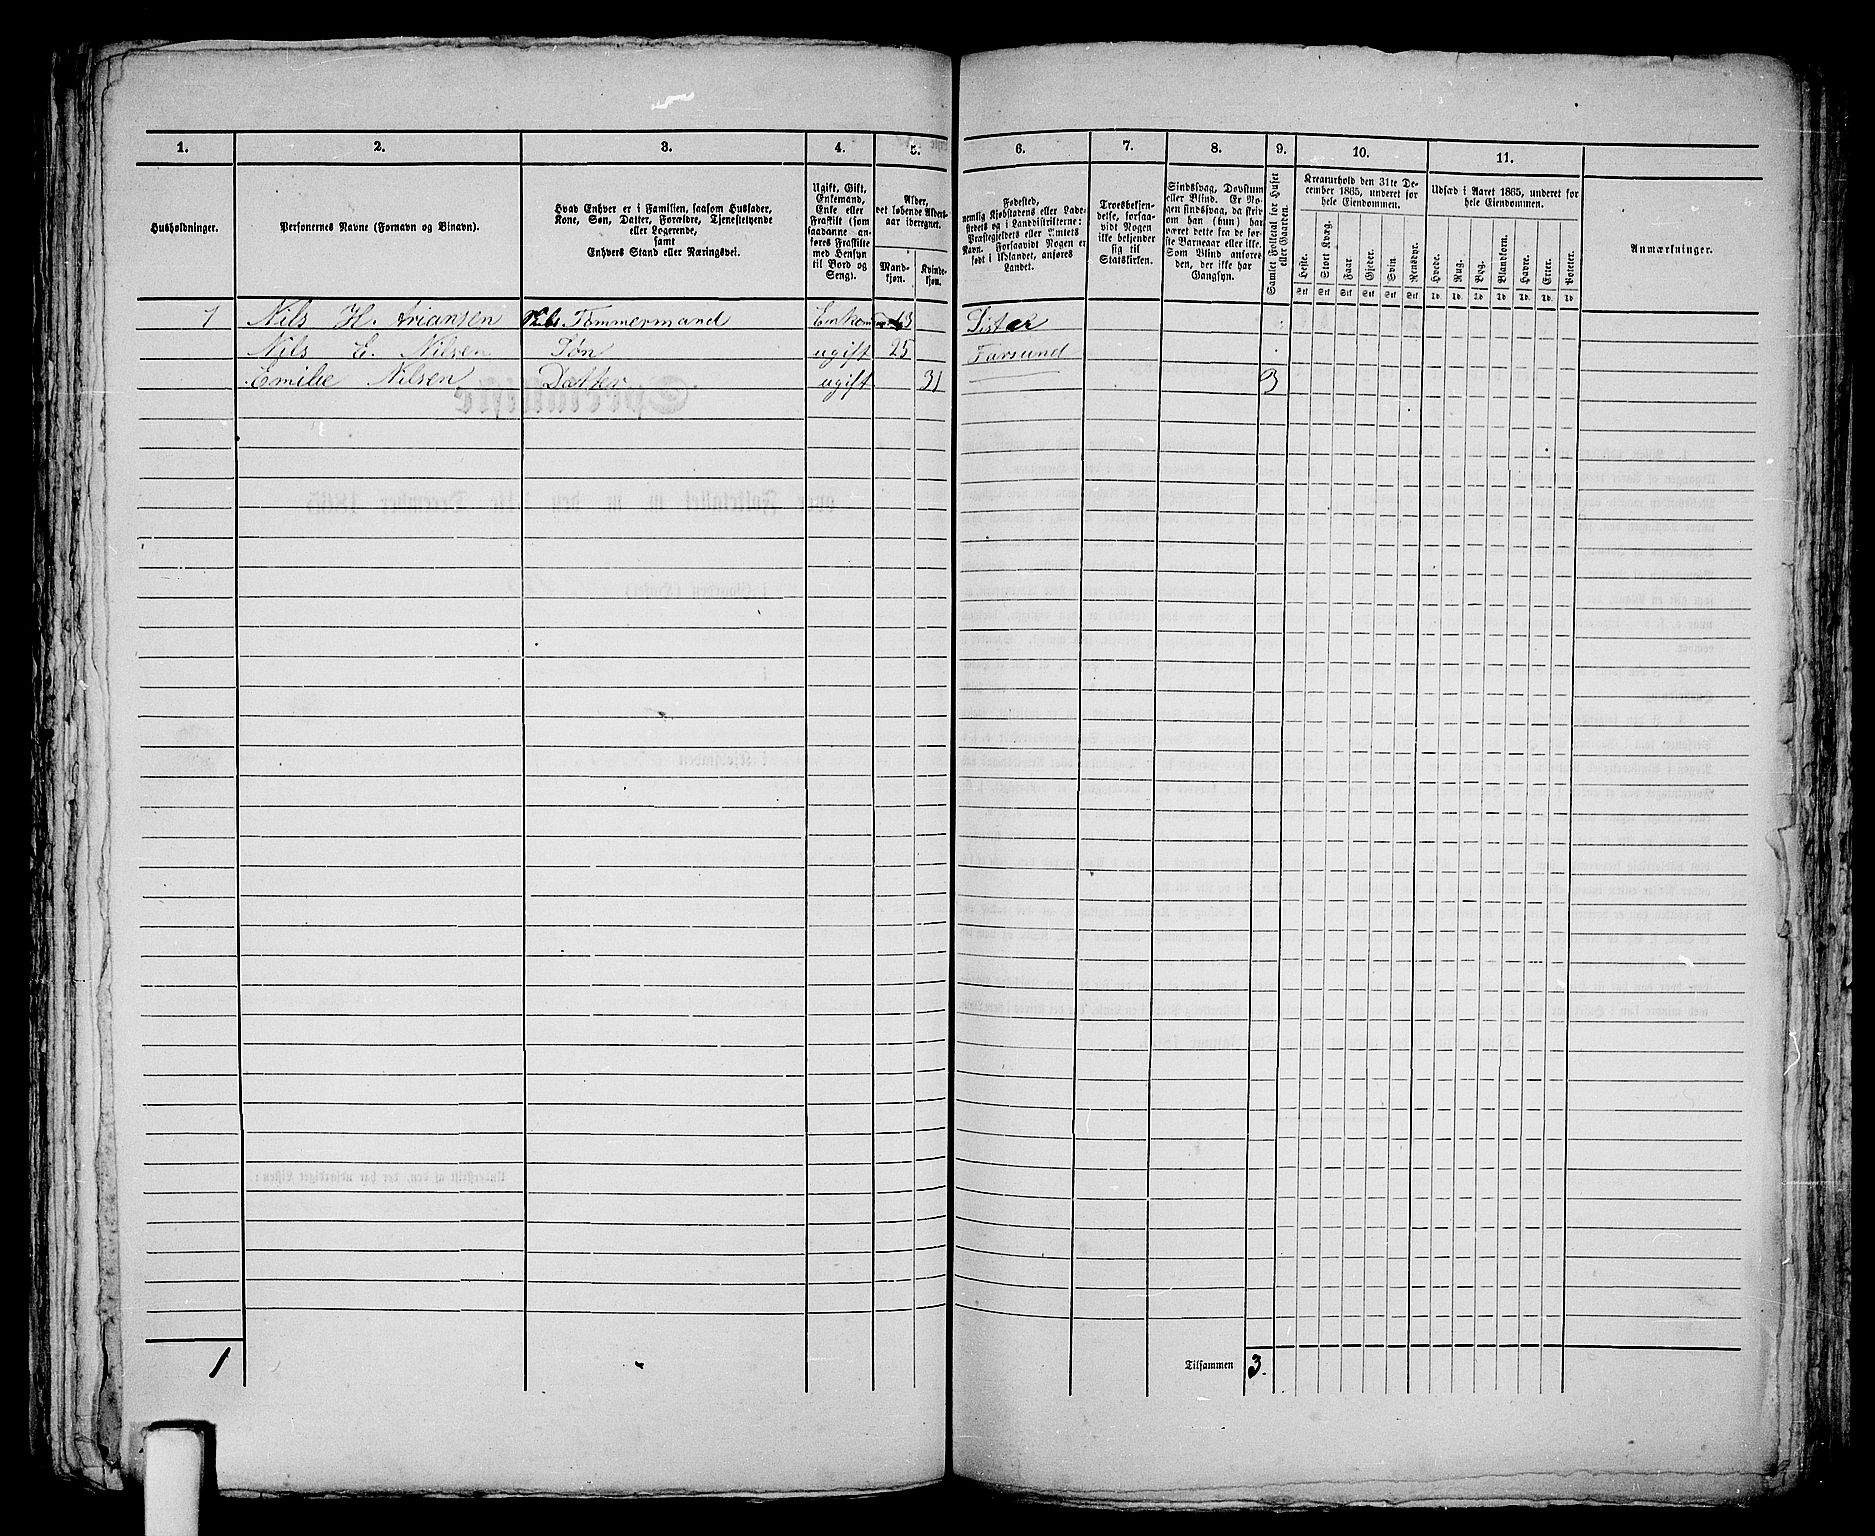 1. 2. 3. 4. 5. 6. 7. 8. 9. 10. 11.
Husholdninger.
Personernes Navne (Fornavn og Binavn).
Hvad Enhver er i Familien, saasom Husfader,
Kone, Søn, Datter, Forældre, Tjenestetyende
eller Logerende,
samt
Enhvers Stand eller Næringsvei.
Ugift, Gift,
Enkemand,
Enke eller
Fraskilt (som
saadanne an-
føres Fraskilte
med Hensyn
til Bord og
Seng).
Alder,
det løbende Alders-
aar iberegnet.
Mand-
kjøn.
Kvinde-
kjøn.
Fødested,
nemlig Kjøbstadens eller Lade-
stedets og i Landdistrikterne:
Præstegjeldets eller Amtets
Navn. Forsaavidt Nogen er
født i Udlandet, anføres
Landet.
Troesbekjen-
delse, forsaa-
vidt Nogen
ikke bekjender
sig til
Statskirken.
Sindssvag, Døvstum
eller Blind. Er No-
gen sindssvag, da skriv
om han (hun) har
været dette fra de før-
ste Barneaar eller ikke.
Som Blind anføres
den, der ikke har
Gangsyn.
Samlet Folketal for Huset
eller Gaarden.
Kreaturhold den 31te De-
cember 1865, underet for
hele Eiendommen.
Heste. Stort Kvæg. Faar. Gjeder. Svin. Rensdyr.
Stk Stk Stk Stk Stk Stk
Udsæd i Aaret 1865, underet for
hele Eiendommen.
Hvede. Rug. Byg. Blandkorn. Havre. Erter. Poteter.
Td. Td. Td. Td. Td. Td. Td.
Anmærkninger.
1 Nils H. Tømmermand Lister
Nils E. Nilsen Søn ugift 25 Farsund
Emilie Nilsen Datter ugift 31 3
1 Tilsammen 3.